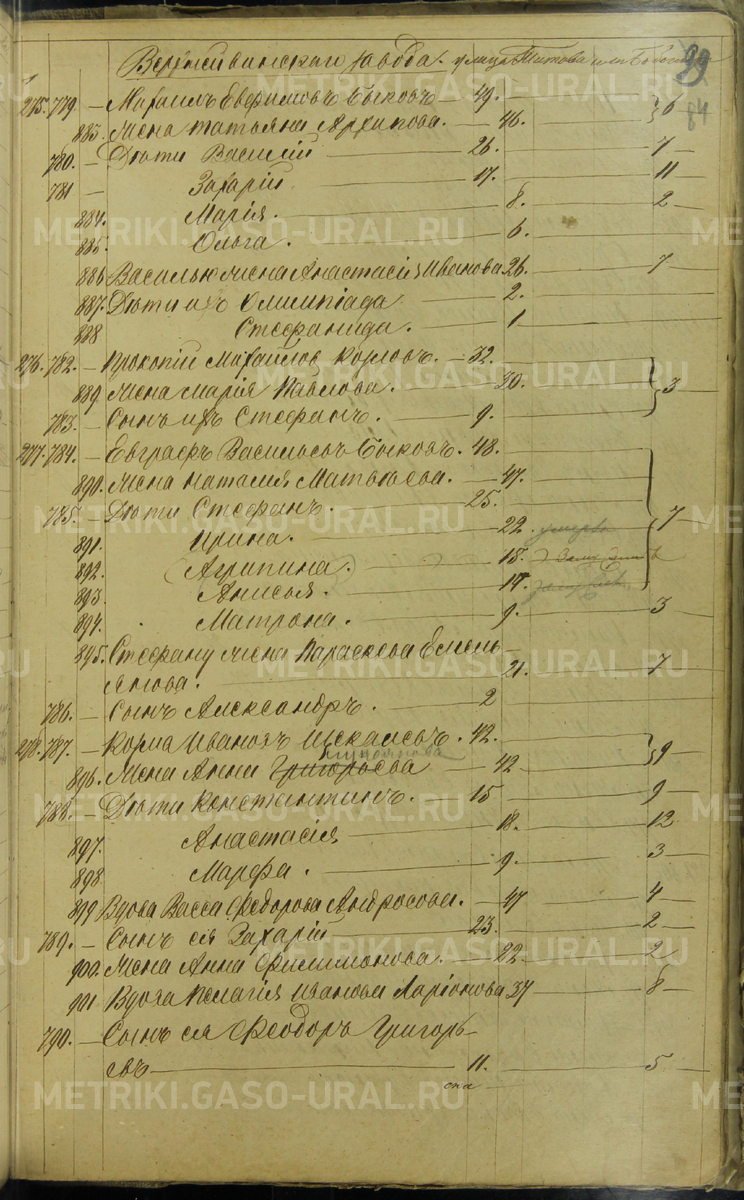 Верхисвинскаго завода. улица Титова или
99
84
275. 779 — Михаилъ Евфимовъ Быковъ — 49. — 6
883. Жена Татьяна Архипова. — 46.
780. — Дѣти Василій — 26. — 7
781 — Захарій — 17. — 11
884. Марія. — 8. — 2
885. Ольга. — 6.
886 Василью жена Анастасія Иванова 26. — 7
887. Дѣти ихъ Олимпіада — 2.
888 Стефанида. — 1
276. 782. — Прокопій Михайлов Козловъ. — 32.
889 Жена Марія Павлова. — 30. — 3
783. — Сынъ ихъ Стефанъ. — 9.
277. 784. — Евграфъ Васильевъ Быковъ. 48.
890. Жена Наталія Матвѣева. — 47.
785. — Дѣти Стефанъ. — 25. — 7
891. Ирина. — 22. умерла
892. (Агрипина.) — 18.
893. Анисья. — 17.
894. Матрона. — 9. — 3
895. Стефану жена Параскева Емель-
янова. — 21. — 7
786. — Сынъ Александръ. — 2
278. 787. — Козма Ивановъ Шекалевъ. 42.
896. Жена Анна Григорьева — 42 — 9
788. — Дѣти Константинъ. — 15 — 9
897. Анастасія — 18. — 12
898. Марфа. — 9. — 3
899 Вдова Васса Феодорова Андросова. — 47 — 4
789. — Сынъ ея Захарій — 23. — 2
900. Жена Анна Филимонова. — 22 — 2
901 Вдова Пелагія Иванова Ларіонова 37 — 8
790. — Сынъ ея Феодоръ Григорь-
евъ — 11. — 5
METRIKI.GASO-URAL.RU